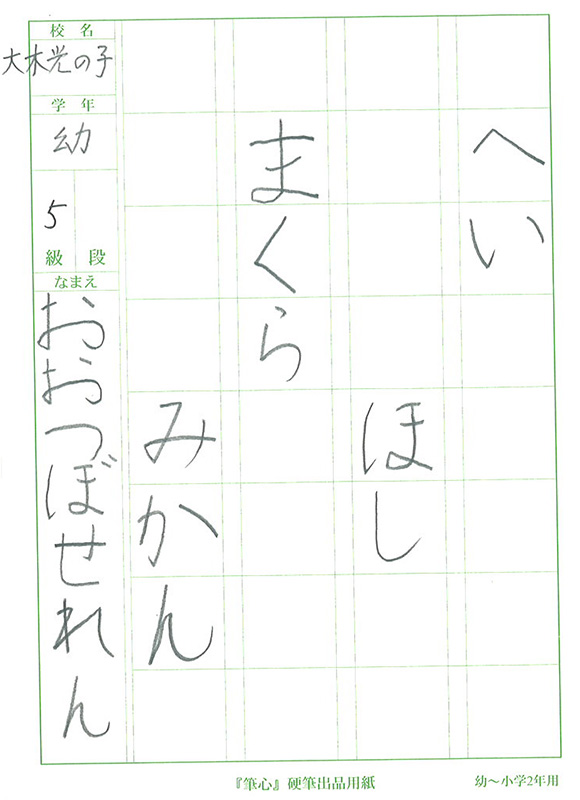 へい
ほし
まくら
みかん
校名
大木光の子
学年
幼
5
級 段
なまえ
おおつぼせれん
『筆心』硬筆出品用紙
幼〜小学2年用